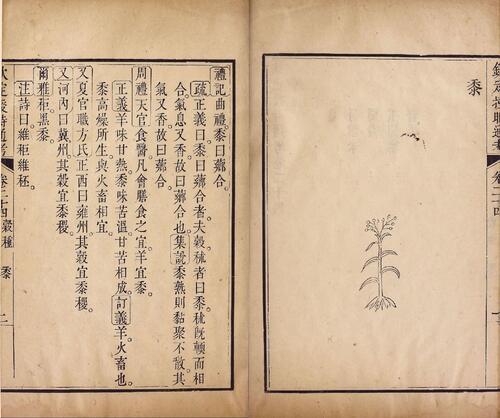 欽定授時通考 卷二十四 一
黍
禮記曲禮。黍曰薌合。
疏正義曰黍曰薌合者。夫穀秫者曰黍。秫既輭而相
合。氣息又香。故曰薌合也。集說黍熟則黏聚不散。其
氣又香。故曰薌合。
周禮天官食醫。凡會膳食之宜。羊宜黍。
正義羊味甘熱。黍味苦溫。甘苦相成。訂義羊火畜也。
黍高燥所生。與火畜相宜。
又夏官職方氏。正西曰雍州。其穀宜黍稷。
又河內曰冀州。其穀宜黍稷。
爾雅秬黑黍。
注詩曰。維秬維秠。
欽定授時通考 卷二十四 穀種 黍 二